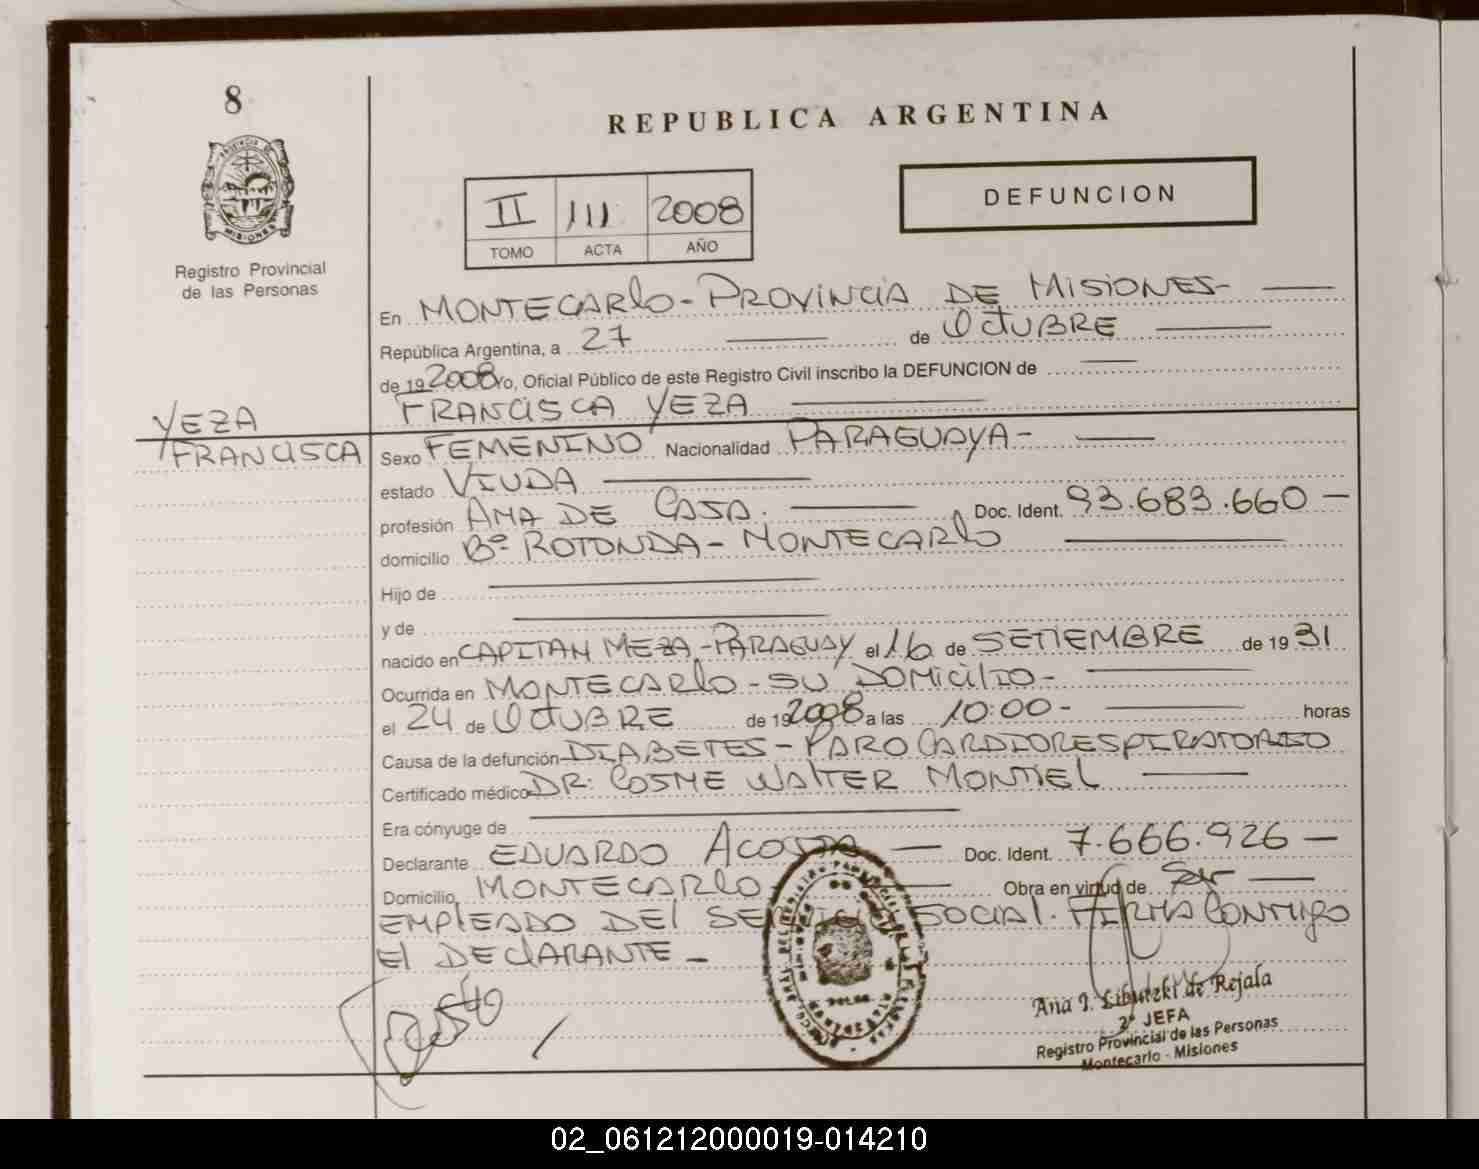 8
REPUBLICA ARGENTINA
DEFUNCION
II 111 2008
TOMO ACTA AÑO
Registro Provincial
de las Personas
En MONTECARLO - PROVINCIA DE MISIONES -
República Argentina, a 27 de OCTUBRE
de 19 2008 Yo, Oficial Público de este Registro Civil inscribo la DEFUNCION de
FRANCISCA YEZA
YEZA
FRANCISCA
Sexo FEMENINO Nacionalidad PARAGUAYA -
estado VIUDA
profesión AMA DE CASA. Doc. Ident. 93.683.660 -
domicilio Bº ROTONDA - MONTECARLO
Hijo de
y de
nacido en CAPITAN MEZA - PARAGUAY el 16 de SETIEMBRE de 19 31
Ocurrida en MONTECARLO - SU DOMICILIO -
el 24 de OCTUBRE de 19 2008 a las 10:00 - horas
Causa de la defunción DIABETES - PARO CARDIORESPIRATORIO
Certificado médico DR: COSME WALTER MONTIEL
Era cónyuge de
Declarante EDUARDO ACOSTA - Doc. Ident. 7.666.926 -
Domicilio MONTECARLO Obra en virtud de Ser
EMPLEADO DEL SERVICIO SOCIAL. FIRMA CONMIGO
El DECLARANTE -
Ana I. Libutzki de Rejala
2ª JEFA
Registro Provincial de las Personas
Montecarlo - Misiones
02_061212000019-014210